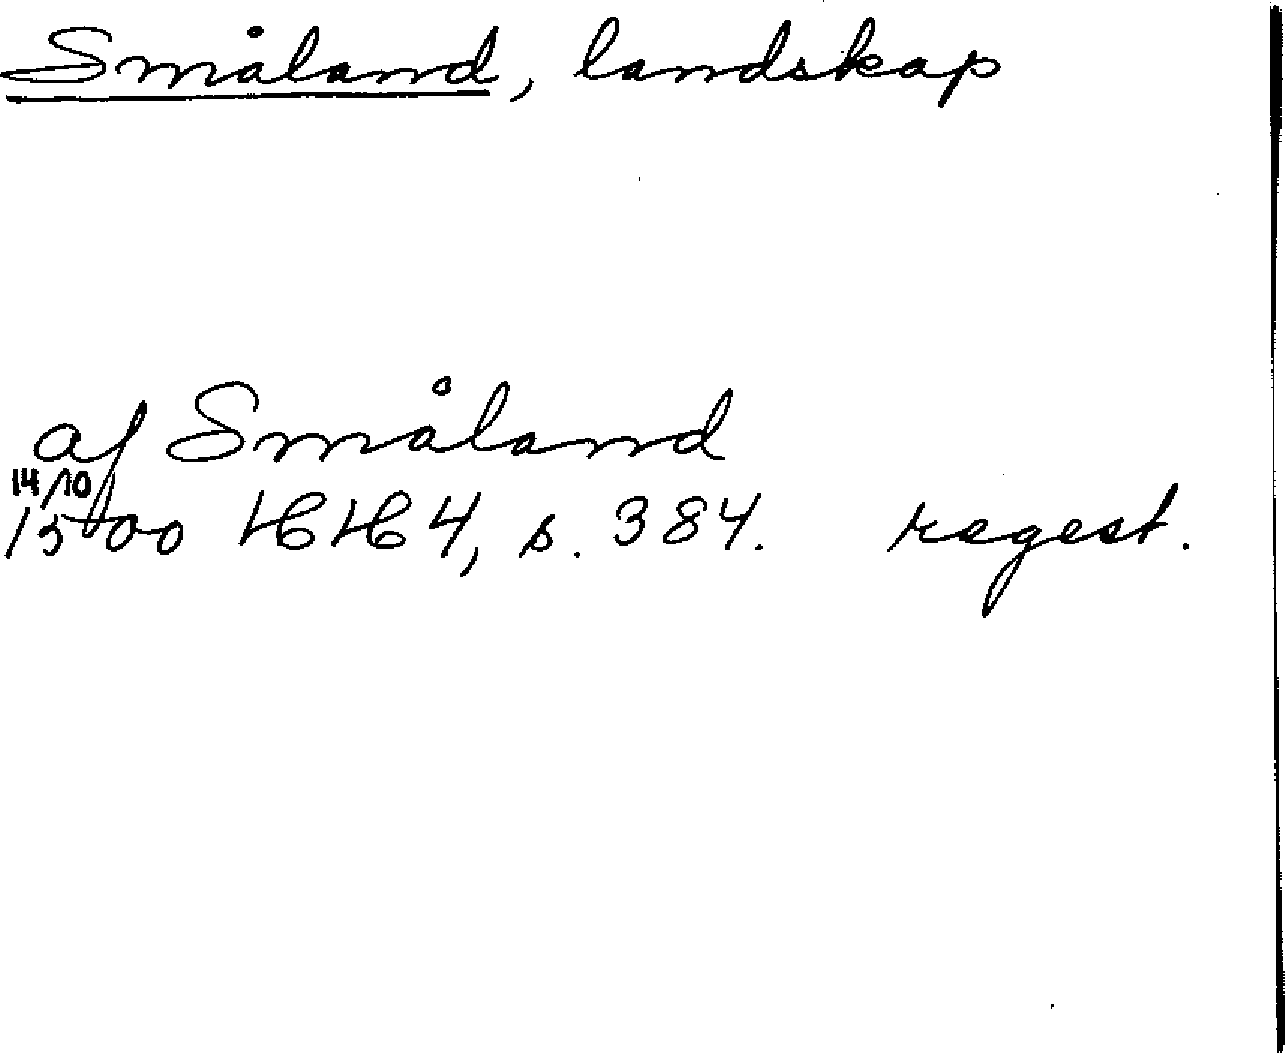 Småland, landskap
af Småland
14/10
1500 HH 4, s. 384. regest.